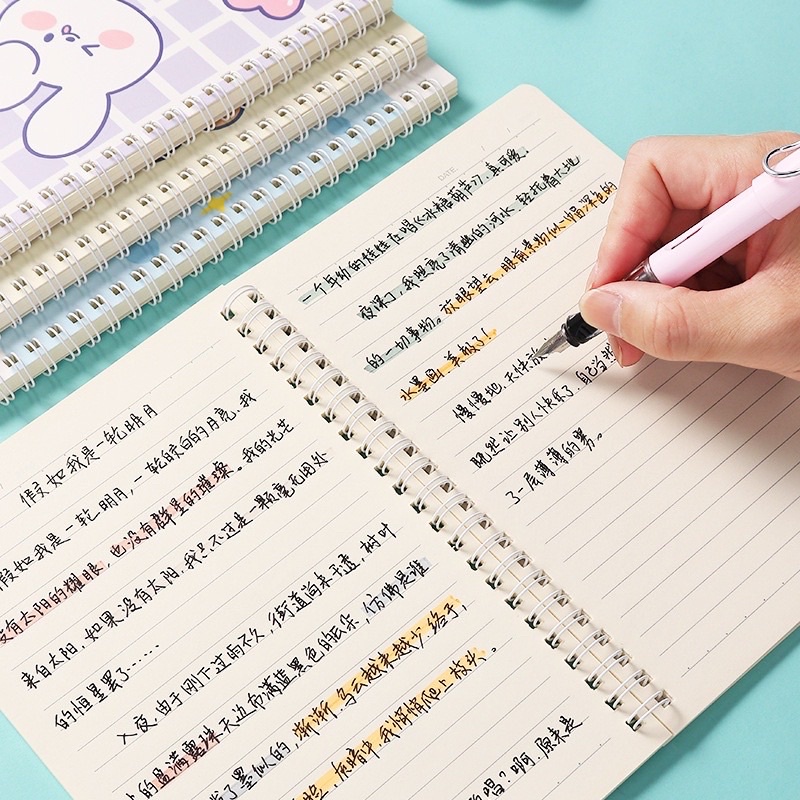 假如我是一轮明月
假如我是一轮明月,一轮皎白的月亮。我
没有太阳的耀眼,也没有群星的璀璨。我的光芒
来自太阳,如果没有太阳,我只不过是一颗毫无用处
的恒星罢了……
入夜,由于刚下过雨不久,街道尚未干透,树叶
的盈满露珠,天边布满蓝黑色的云朵,仿佛是谁
了墨似的,渐渐乌云越来越少,终于,
脸,黑暗中,我悄悄爬上枝头。
唱?啊,原来是
DATE
一个年幼的娃娃在唱《冰糖葫芦》,真可爱。
夜深了,我照亮了清幽的河水,轻抚着大地
的一切事物。放眼望去,眼前景物似一幅深色的
水墨画,美极了!
慢慢地,天快
既然让别人快乐了,自己当然
了一层薄薄的雾。